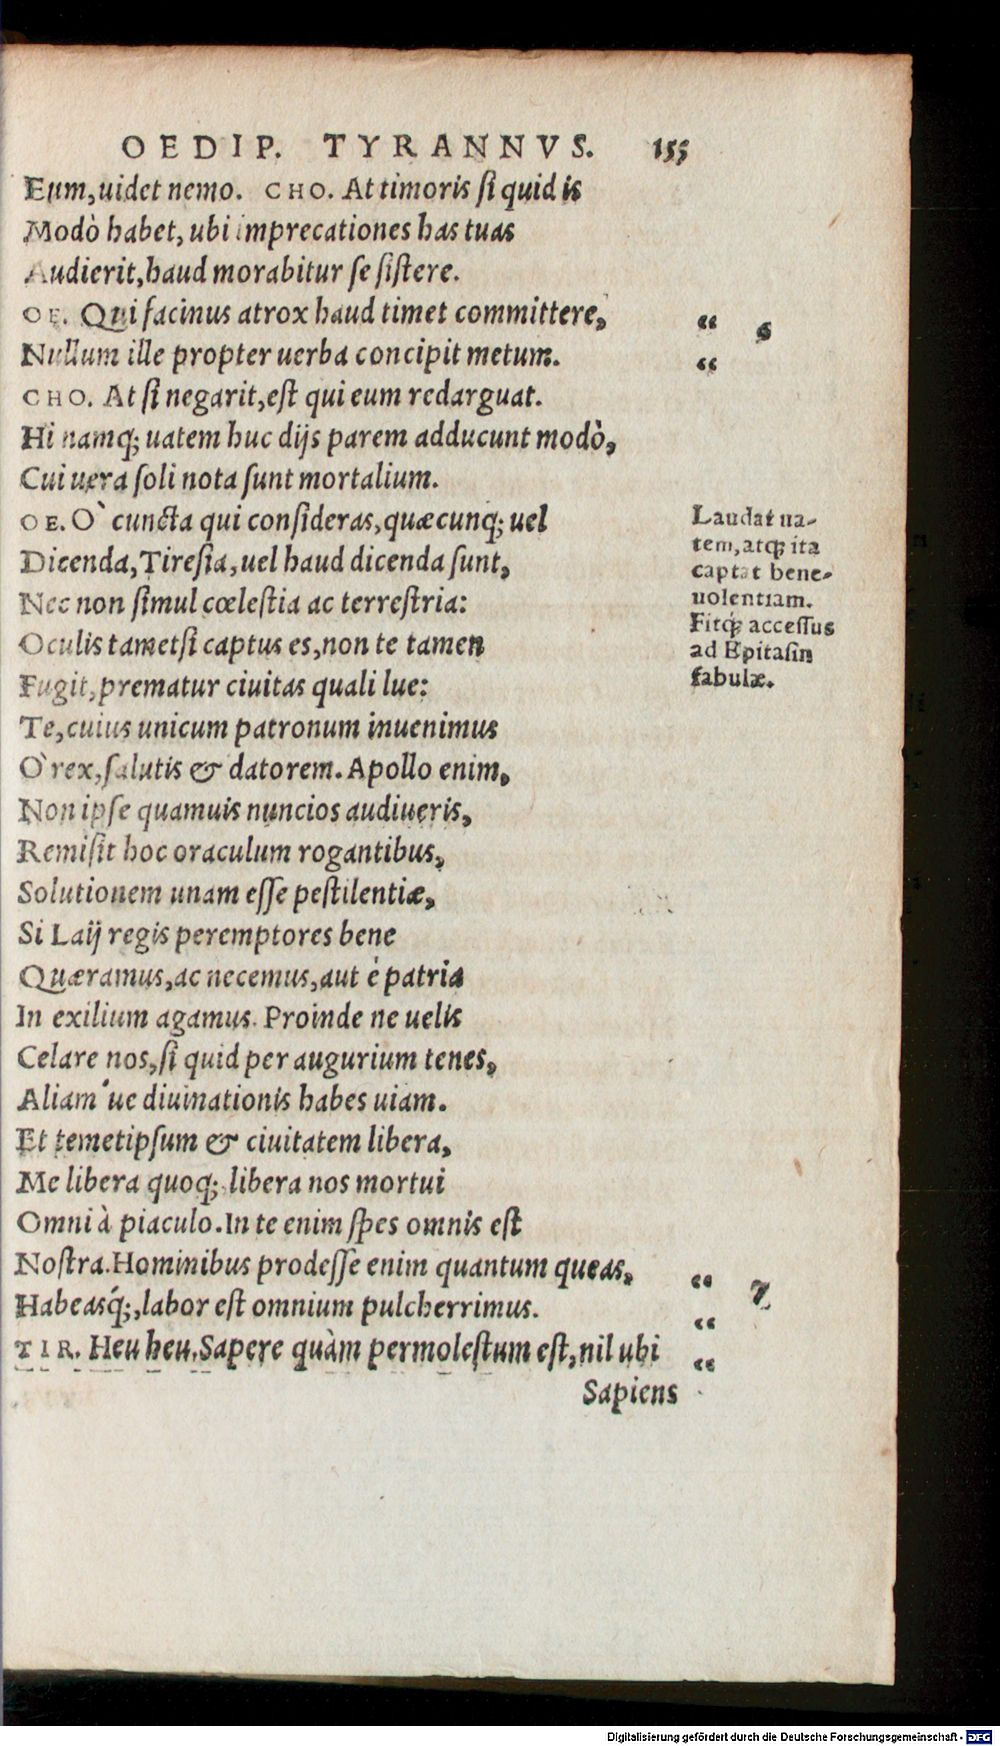 OEDIP. TYRANNVS. 155
Eum, uidet nemo. CHO. At timoris ſi quid is
Modò habet, ubi imprecationes has tuas
Audierit, haud morabitur ſe ſiſtere.
OE. Qui facinus atrox haud timet committere, “ 6
Nullum ille propter uerba concipit metum. “
CHO. At ſi negarit, eſt qui eum redarguat.
Hi namq; uatem huc dijs parem adducunt modò,
Cui uera ſoli nota ſunt mortalium.
OE. O` cuncta qui conſideras, quæcunq; uel
Dicenda, Tireſia, uel haud dicenda ſunt,
Nec non ſimul cœleſtia ac terreſtria:
Oculis tametſi captus es, non te tamen
Fugit, prematur ciuitas quali lue:
Te, cuius unicum patronum inuenimus
O` rex, ſalutis & datorem. Apollo enim,
Non ipſe quamuis nuncios audiueris,
Remiſit hoc oraculum rogantibus,
Solutionem unam eſſe peſtilentiæ,
Si Laij regis peremptores bene
Quæramus, ac necemus, aut è patria
In exilium agamus. Proinde ne uelis
Celare nos, ſi quid per augurium tenes,
Aliam'ue diuinationis habes uiam.
Et temetipſum & ciuitatem libera,
Me libera quoq; libera nos mortui
Omni à piaculo. In te enim ſpes omnis eſt
Noſtra. Hominibus prodeſſe enim quantum queas, “ 7
Habeasq́;, labor eſt omnium pulcherrimus. “
TIR. Heu heu. Sapere quàm permoleſtum eſt, nil ubi “
Sapiens
Laudat ua-
tem, atq; ita
captat bene-
uolentiam.
Fitq́; acceſſus
ad Epitaſin
fabulæ.
Digitalisierung gefördert durch die Deutsche Forschungsgemeinschaft - DFG